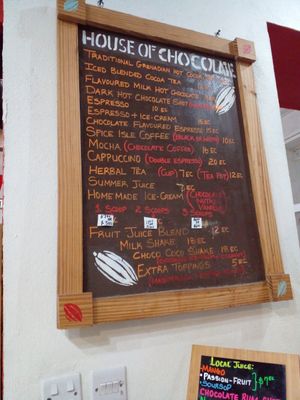 HOUSE OF CHOCOLATE
TRADITIONAL GRENADIAN HOT COCOA TEA
ICED BLENDED COCOA TEA
FLAVOURED MILK HOT CHOCOLATE
DARK HOT CHOCOLATE SHOT
ESPRESSO 10 EC
ESPRESSO + ICE-CREAM 15 EC
CHOCOLATE FLAVOURED ESPRESSO 15 EC
SPICE ISLE COFFEE 10 EC
MOCHA (CHOCOLATE COFFEE) 18 EC
CAPPUCCINO (DOUBLE ESPRESSO) 20 EC
HERBAL TEA (CUP) 7EC (TEA POT) 12 EC
SUMMER JUICE 7 EC
HOMEMADE ICE-CREAM (CHOCOLATE
NUTMEG
VANILLA)
1 SCOOP 2 SCOOPS 3 SCOOPS
FRUIT JUICE BLEND 12 EC
MILK SHAKE 18 EC
CHOCO COCO SHAKE 18 EC
EXTRA TOPPINGS 5 EC
LOCAL JUICE:
• MANGO
• PASSION-FRUIT
• SOURSOP
} $7 EC
CHOCOLATE